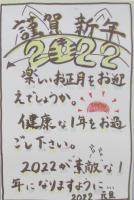 謹賀新年
2022
楽しいお正月をお迎
えでしょうか。
健康な1年をお過
ごし下さい。
2022が素敵な1
年になりますように…
2022 元旦